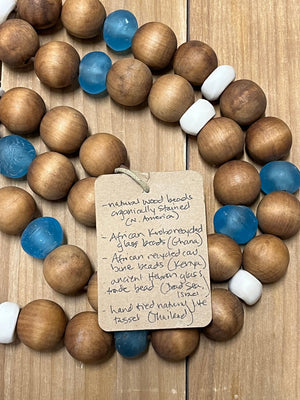 - natural wood beads
organically stained
(N. America)
- African Krobo recycled
glass beads (Ghana)
- African recycled cow
bone beads (Kenya)
ancient Hebron glass
trade bead (Dead Sea,
Israel)
- hand tied natural jute
tassel (Thailand)